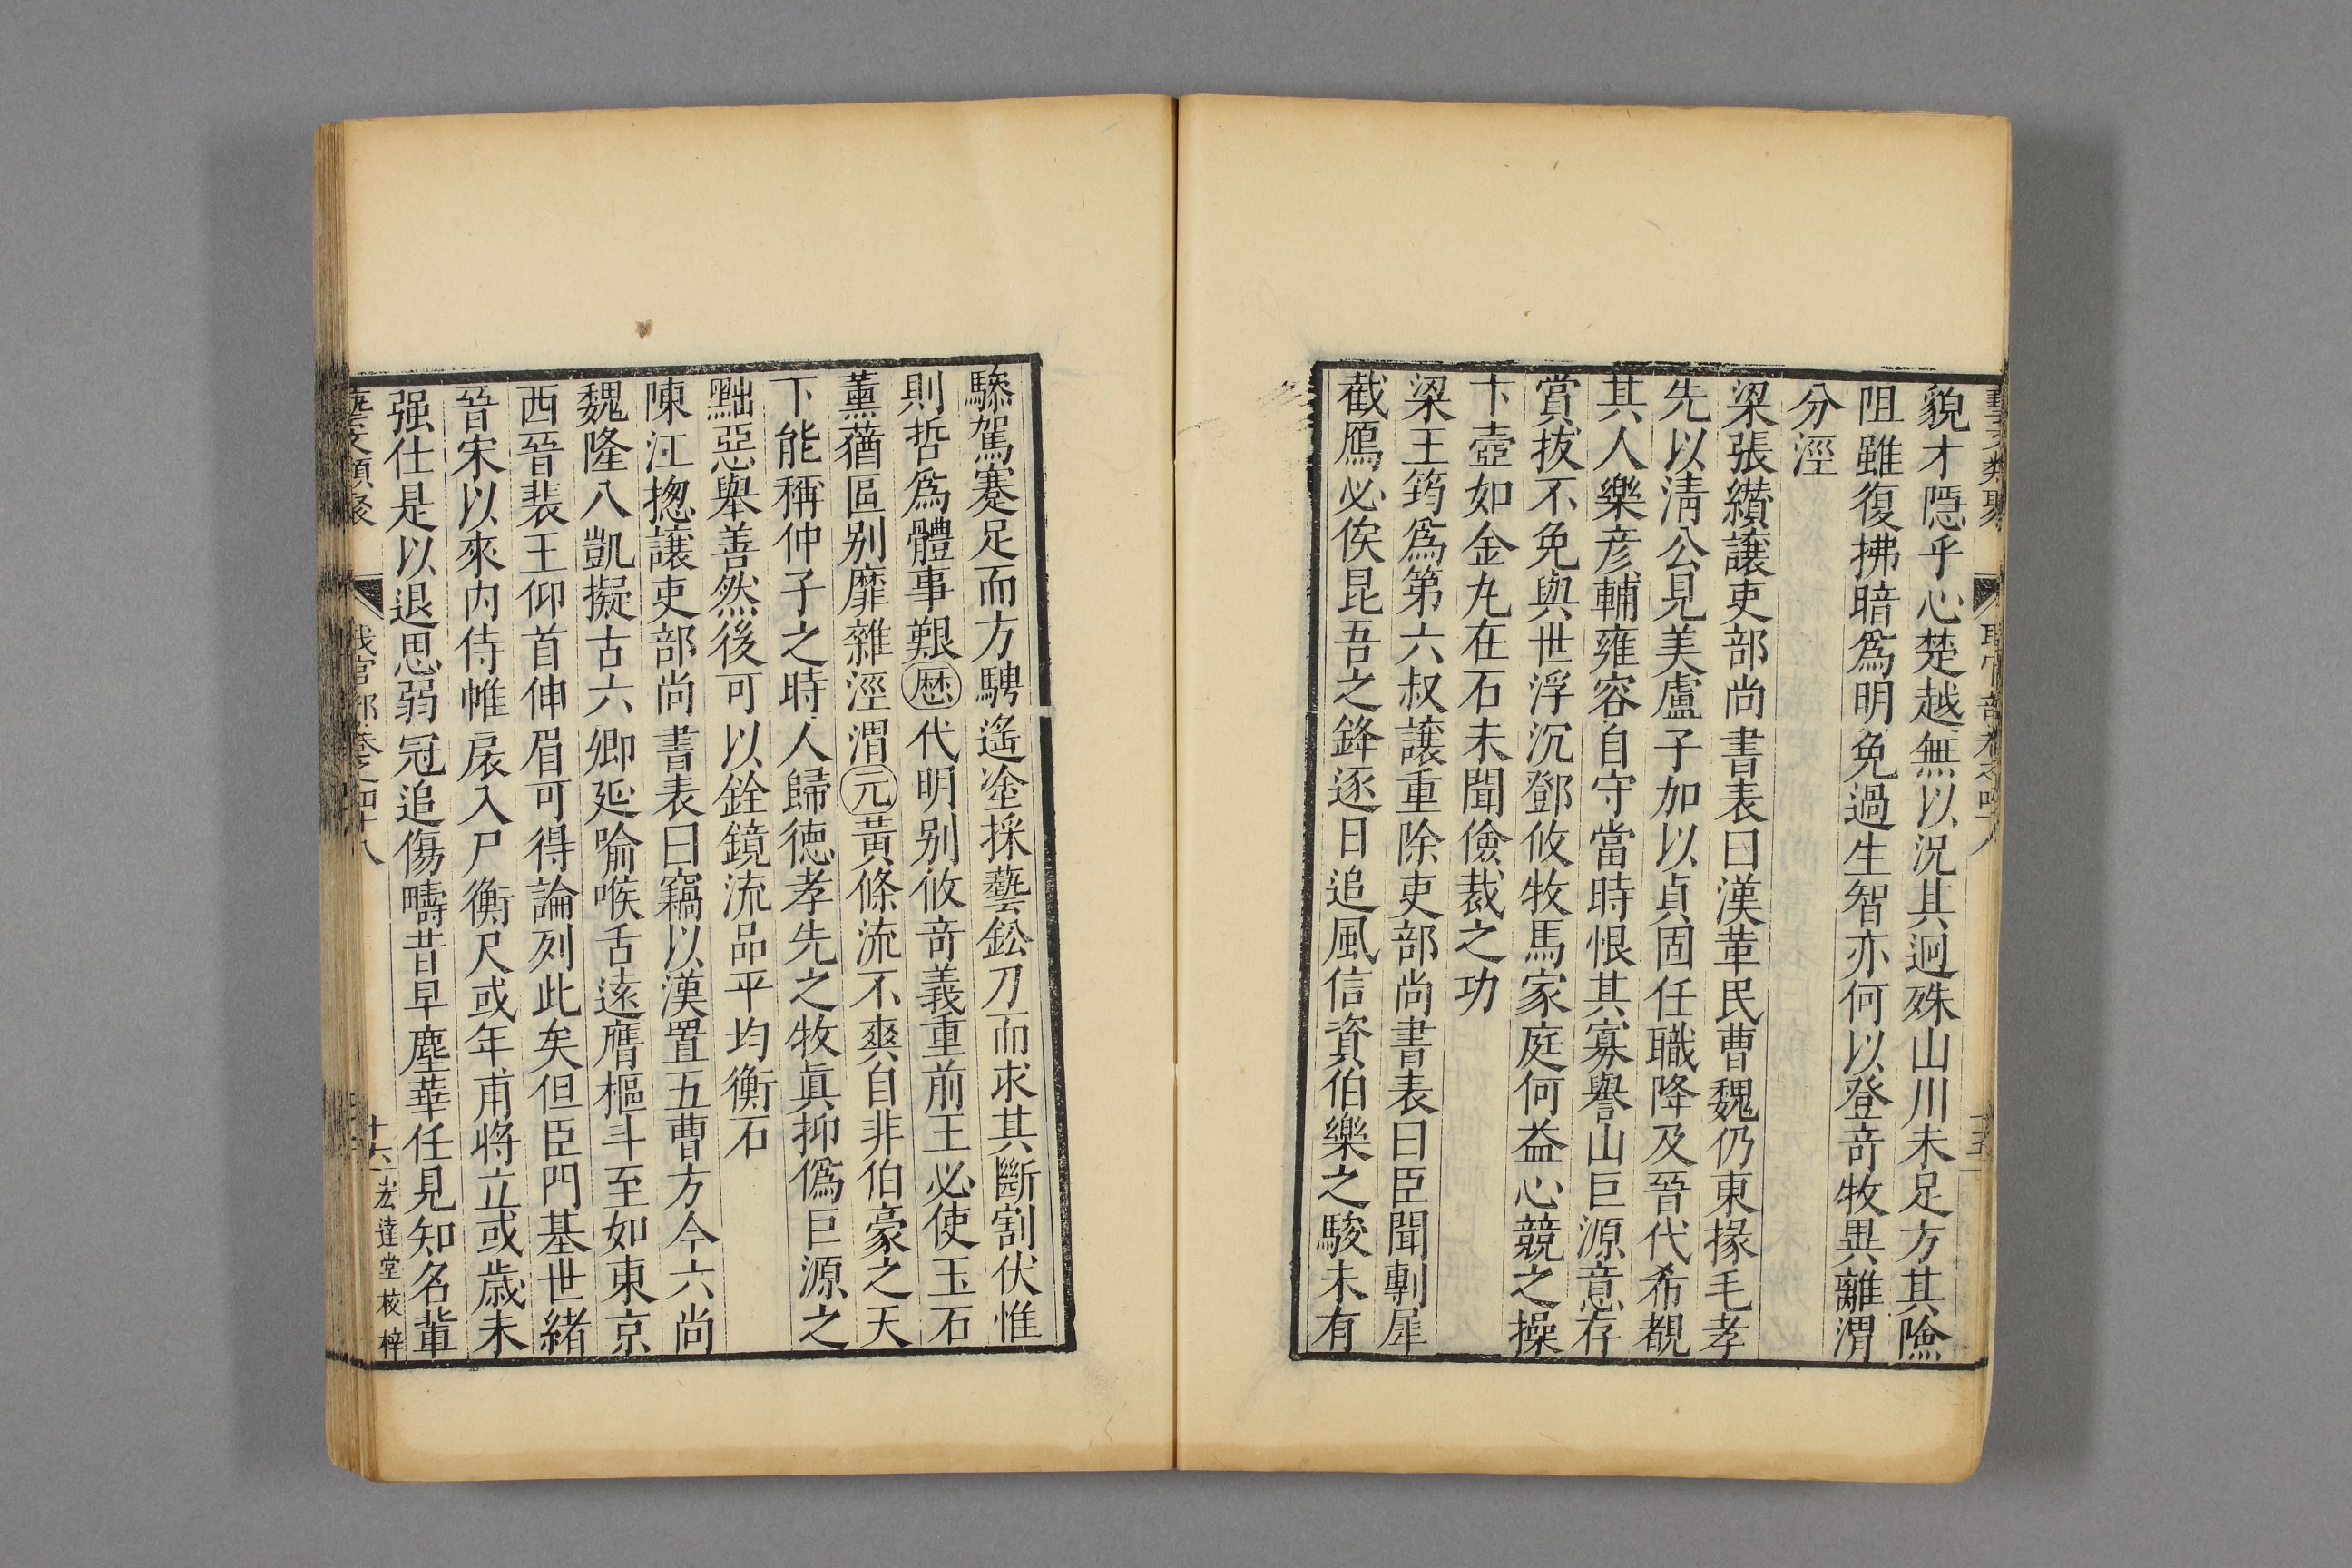 貌才隱乎心楚越無以況其迥殊山川未足方其險
阻雖復拂暗爲明免過生智亦何以登竒牧異離渭
分涇
梁張纘讓吏部尚書表曰漢革民曹魏仍東掾毛孝
先以淸公見美盧子加以貞固任職降及晉代希覩
其人樂彦輔雍容自守當時恨其寡譽山巨源意存
賞拔不免與世浮沉鄧攸牧馬家庭何益心競之操
卞壺如金九在石未聞儉裁之功
梁王筠爲第六叔讓重除吏部尚書表曰臣聞剸犀
截鴈必俟昆吾之鋒逐日追風信資伯樂之駿未有
驂駕蹇足而方騁遙塗採藝鈆刀而求其斷割伏惟
則哲爲體事艱歷代明别攸竒義重前王必使玉石
薰蕕區别靡雜涇渭元黃條流不爽自非伯豪之天
下能稱仲子之時人歸德孝先之牧眞抑僞巨源之
黜惡舉善然後可以銓鏡流品平均衡石
陳江揔讓吏部尚書表曰竊以漢置五曹方今六尚
魏隆八凱擬古六卿延喻喉舌遠膺樞斗至如東京
西晉裴王仰首伸眉可得論列此矣但臣門基世緒
晉宋以來内侍帷扆入尸衡尺或年甫將立或歲未
强仕是以退思弱冠追傷疇昔早塵華任見知名輩
藝文類聚 職官部卷之四十八 十六 宏達堂校梓